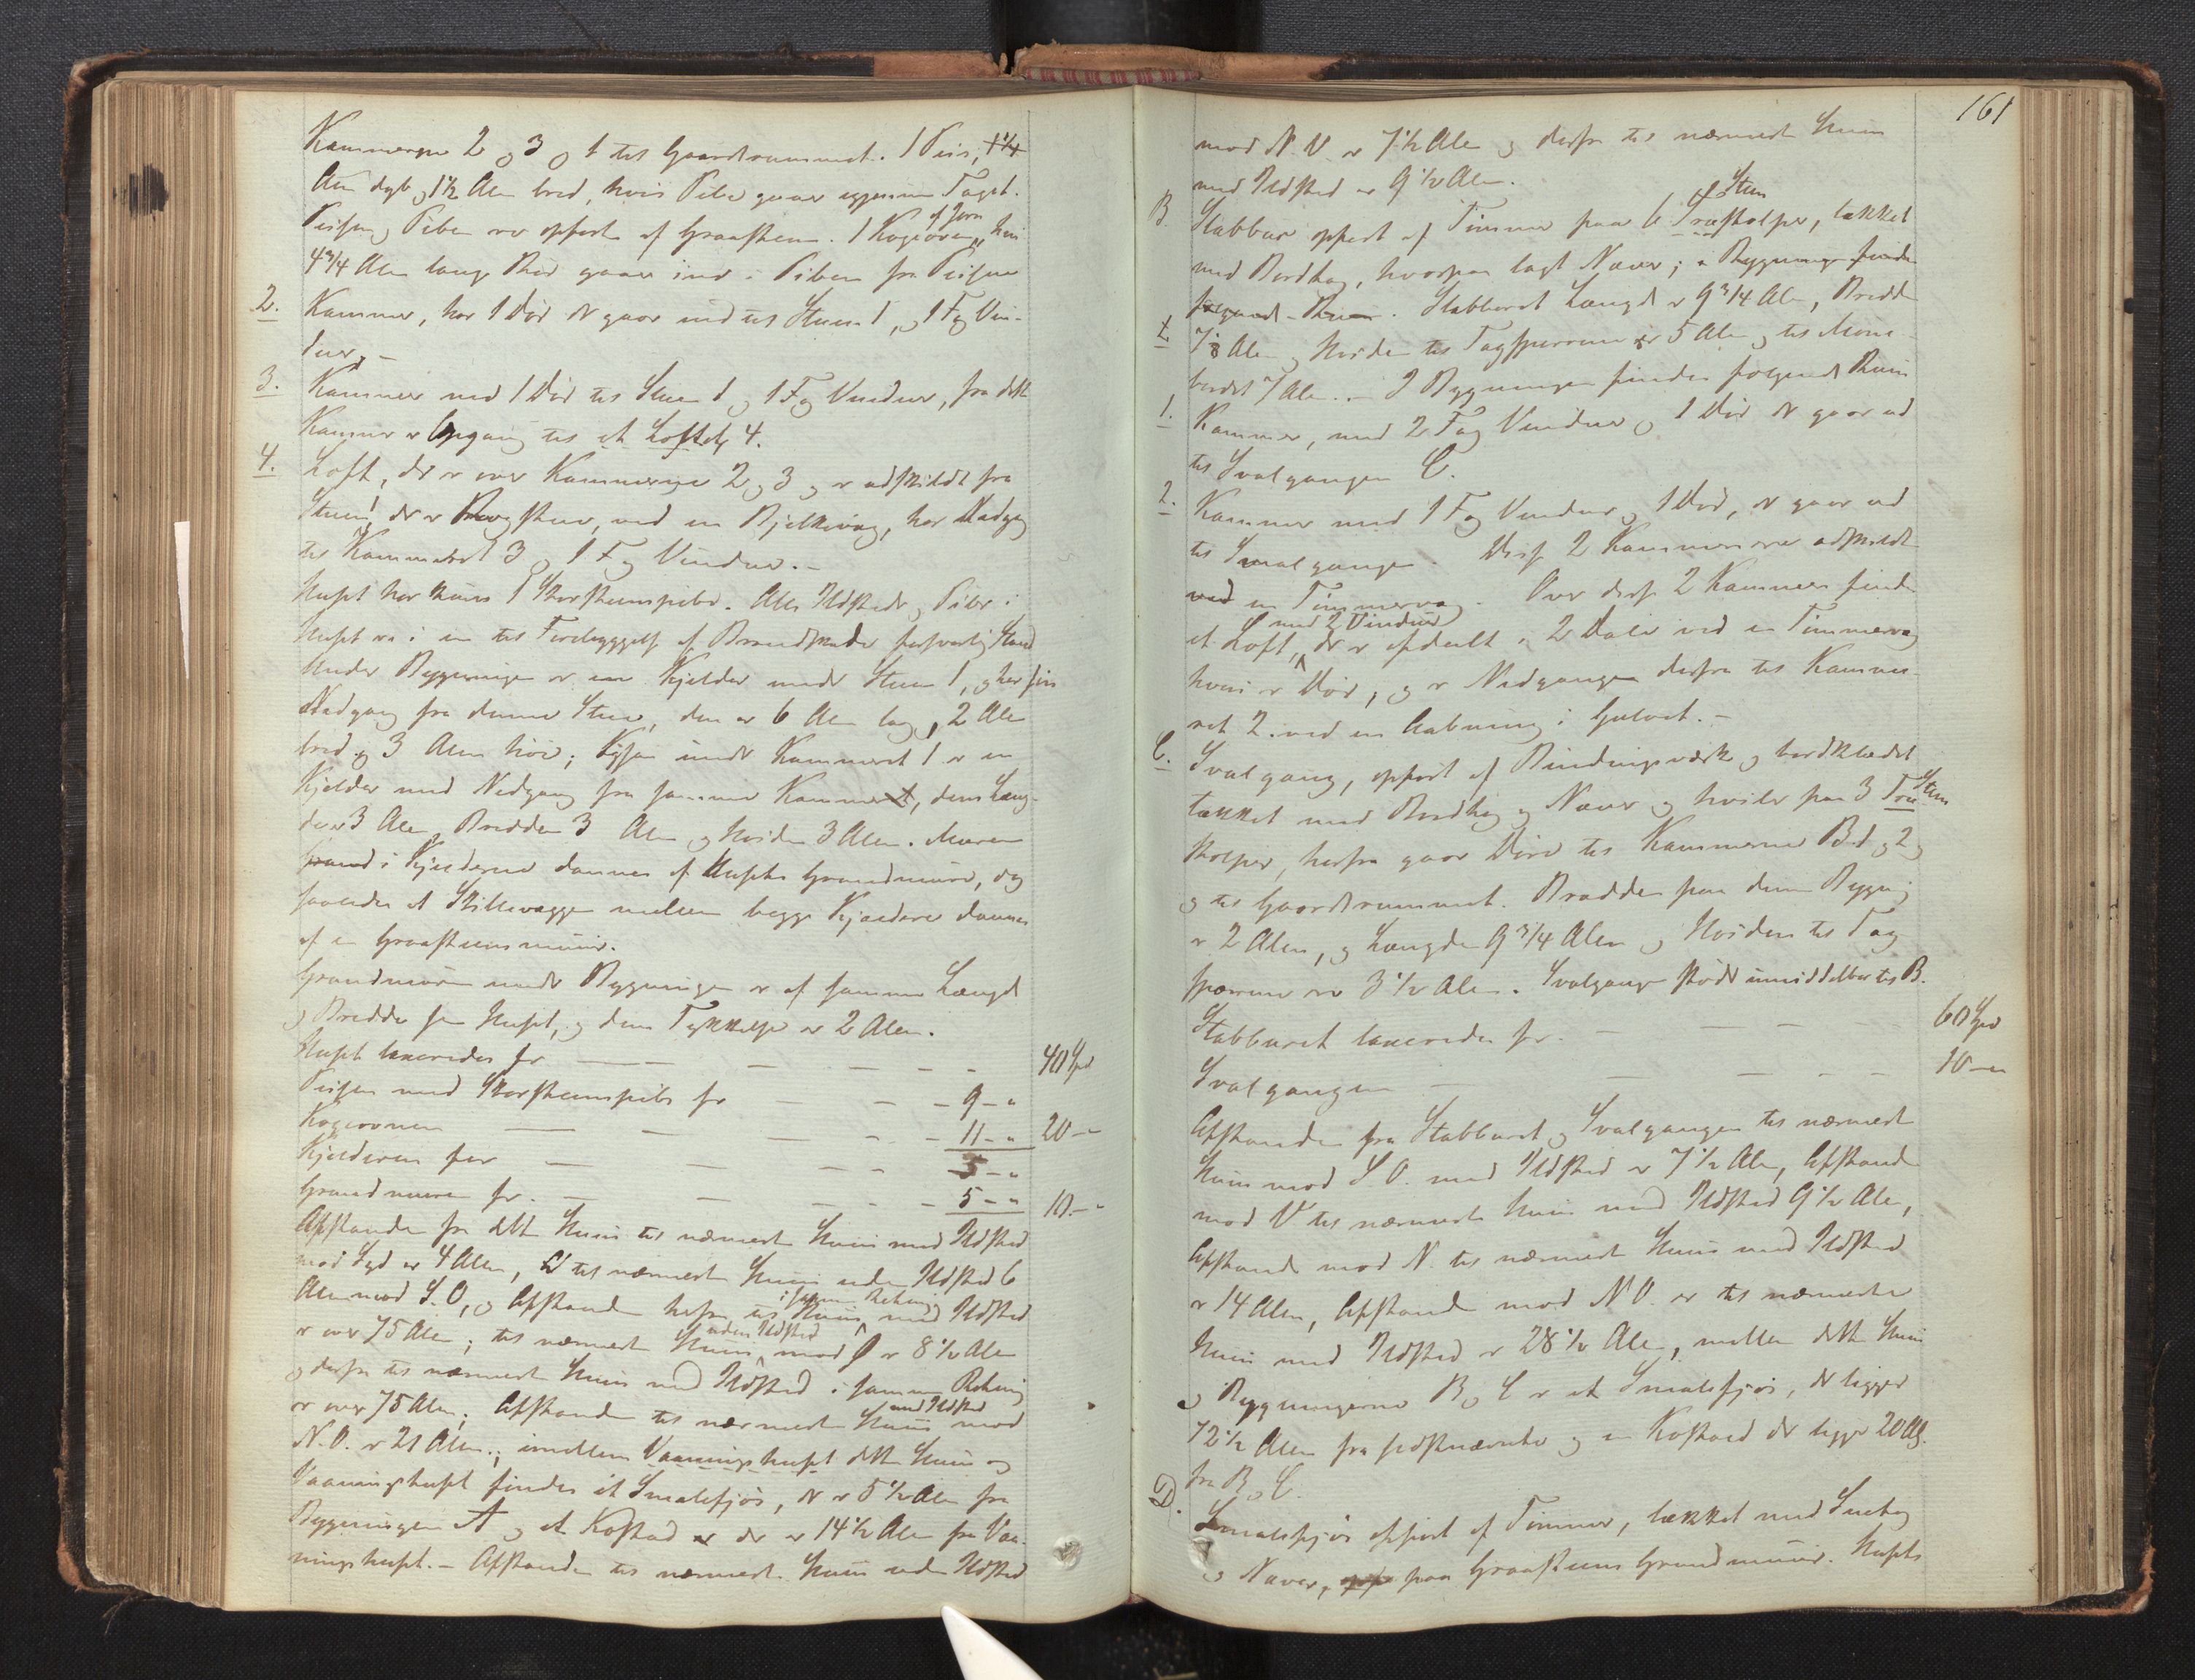 Kammerne 2 og 3 og 1 til Gaardsrummet. 1 Peis, 1 1/4
Alen dyb og 1 1/2 Alen bred, hvis Pibe gaaer igjennem Taget.
Peisen og Piben er opført af Graasteen. 1 Kogeovn af Jern, hvis
4 3/4 Alen lange Rør gaaer ind i Piben fra Peisen
2. Kammer, har 1 Dør der gaar ind til Stuen 1, og 1 Fag Vin-
duer, –
3. Kammer med 1 Dør til Stuen 1 og 1 Fag Vinduer, fra dette
Kammer er Opgang til et Loft 4.
4. Loft, der er over Kammerne 2 og 3 og er adskildt fra
Stuen 1, der er Røgstue, ved en Bjelkevæg, har Nedgang
til Kammeret 3 og 1 Fag Vinduer. –
Huset har kuns 1 Skorsteenspibe. Alle Ildsteder og Piber i
Huset er i en til Forebyggelse af Brandskade forsvarlig Stand
Under Bygningen er en Kjelder under Stuen 1, og har sin
Nedgang fra denne Stue, den er 6 Alen lang, 2 Alen
bred og 3 Alen høi; ligesaa under Kammeret 1 er en
Kjelder med Nedgang fra samme Kammer, dens Læng-
de er 3 Alen, Bredden 3 Alen og Høiden 3 Alen. Murene
i Kjelderne dannes af Husets Grundmure, dog
saaledes at Skillevæggen mellem begge Kjeldere dannes
af en Graasteensmuur.
Grundmuren under Bygningen er af samme Længde
og Bredde som Huset, og dens Tykkelse er 2 Alen.
Huset taxeredes for — — — — 40 Spd
Peisen med Skorsteenspibe for — — 9 – "
Kogeovnen — — — — 11 – " 20 – "
Kjelderen for — — — — 5 – "
Grundmuren for. — — — 5 – " 10. – "
Afstanden fra dette Huus til nærmeste Huus med Ildsted
mod Syd er 4 Alen, til nærmeste Huus uden Ildsted 6
Alen mod S.O, og Afstanden herfra til Huus i samme Retning med Ildsted
er over 75 Alen; til nærmeste Huus uden Ildsted mod Ø er 8 1/2 Alen
og derfra til nærmeste Huus med Ildsted i samme Retning
er over 75 Alen; Afstanden til nærmeste Huus med Ildsted mod
N.O. er 21 Alen; imellem Vaaningshuset dette Huus og
Vaaningshuset findes et Smalefjøs, der er 5 1/2 Alen fra
Bygningen A og et Kostad der er 14 1/2 Alen fra Vaa-
ningshuset. – Afstanden til nærmeste Huus uden Ildsted
161
mod N.V. er 7 1/2 Alen og derfra til nærmeste Huus
med Ildsted er 9 1/2 Alen.
B. Stabbur opført af Timmer paa 6 Træ Steen stolper, tækket
med Bordtag, hvorpaa lagt Næver; i Bygningen findes
følgende Rum. Stabburets Længde er 9 3/4 Alen, Bredde
7 Alen og Høiden til Tagsperrerne er 5 Alen og til Møne-
bordet 7 Alen. – I Bygningen findes følgende Rum
1. Kammer, med 2 Fag Vinduer og 1 Dør der gaar ud
til Svalgangen C.
2. Kammer med 1 Fag Vinduer og 1 Dør, der gaar ud
til Svalgangen. Disse 2 Kammer ere adskildt
ved en Timmervæg. Over disse 2 Kammer findes
et Loft, med 2 Vinduer der er afdeelt i 2 Dele ved en Timmervæg
hvori er Dør, og er Nedgangen derfra til Kamme-
ret 2. ved en Aabning i Gulvet. –
C. Svalgang, opført af Bindingsværk og bordklædet
tækket med Bordtag og Næver og hviler paa 3 Træ Steen
stolper, herfra gaar Døre til Kammerne B. 1 og 2 og
og til Gaardsrummet. Bredden paa denne Bygning
er 2 Alen, og Længden 9 3/4 Alen og Høiden til Tag-
sperrerne er 3 1/2 Alen. Svalgangen støder umiddelbar til B.
Stabburet taxeredes for. — — — 60 Spd
Svalgangen — — — — 10 – "
Afstanden fra Stabburet og Svalgangen til nærmeste
Huus mod S.O. med Ildsted er 7 1/2 Alen, Afstanden
mod V til nærmeste Huus med Ildsted 9 1/2 Alen,
Afstanden mod N. til nærmeste Huus med Ildsted
er 14 Alen, Afstanden mod N.O. er til nærmeste
Huus med Ildsted er 28 1/2 Alen, mellem dette Huus
og Bygningerne B og C er et Smalefjøs, der ligger
12 1/2 Alen fra sidstnævnte og en Kostad der ligger 20 Al.
fra B og C.
D. Smalefjøs opført af Timmer, tækket med
og Næver, paa Graasteens Grundmuur. Husets